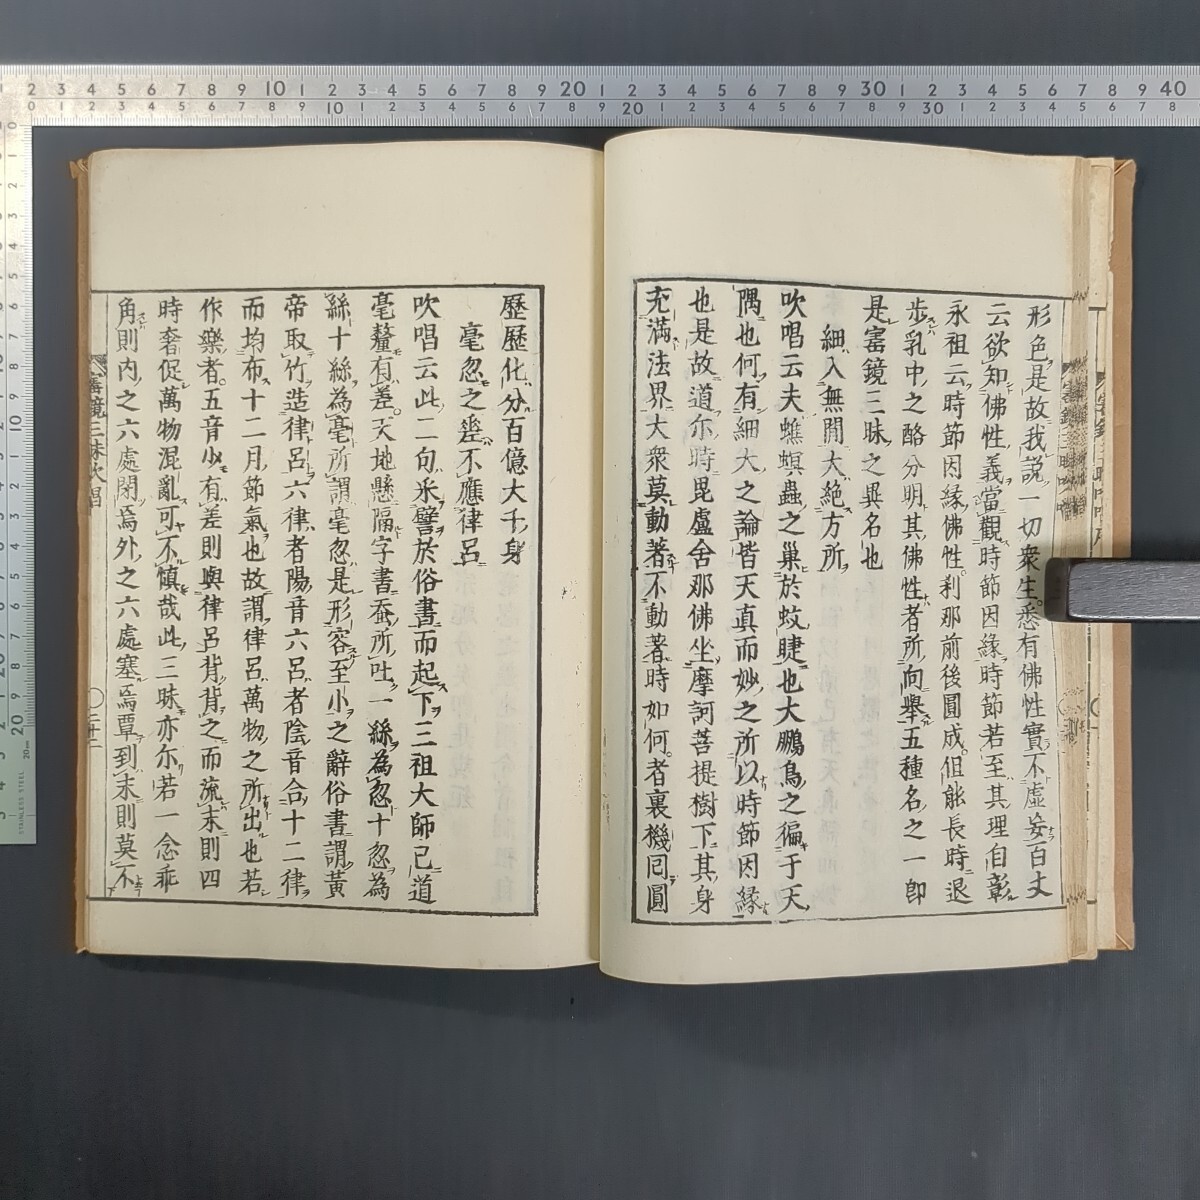 形色是故我說一切衆生悉有佛性實不虛妄百丈
云欲知佛性義當觀時節因緣時節若至其理自彰
永祖云時節因緣佛性刹那前後圓成但能長時退
步乳中之酪分明其佛性者所向舉五種名之一卽
是寶鏡三昧之異名也
細入無間大絕方所
吹唱云夫蟭螟蟲之巢於蚊睫也大鵬鳥之徧于天
隅也何有細大之論皆天真而妙之所以時節因緣
也是故道尓時毘盧舍那佛坐摩訶菩提樹下其身
充滿法界大衆莫動著不動著時如何者裏機同圓
歷歷化分百億大千身
毫忽之差不應律呂
吹唱云此二句米譬於俗書而起下三祖大師已道
毫釐有差天地懸隔字書蚕所吐一絲為忽十忽為
絲十絲為毫所謂毫忽是形容至小之辭俗書謂黃
帝取竹造律呂六律者陽音六呂者陰音合十二律
而均布十二月節氣也故謂律呂萬物之所出也若
作樂者五音少有差則與律呂背背之而流末則四
時奢促萬物混亂可不慎哉此三昧亦尓若一念乖
角則內之六處閉焉外之六處塞焉覃到末則莫不
寶鏡三昧吹唱
二十二